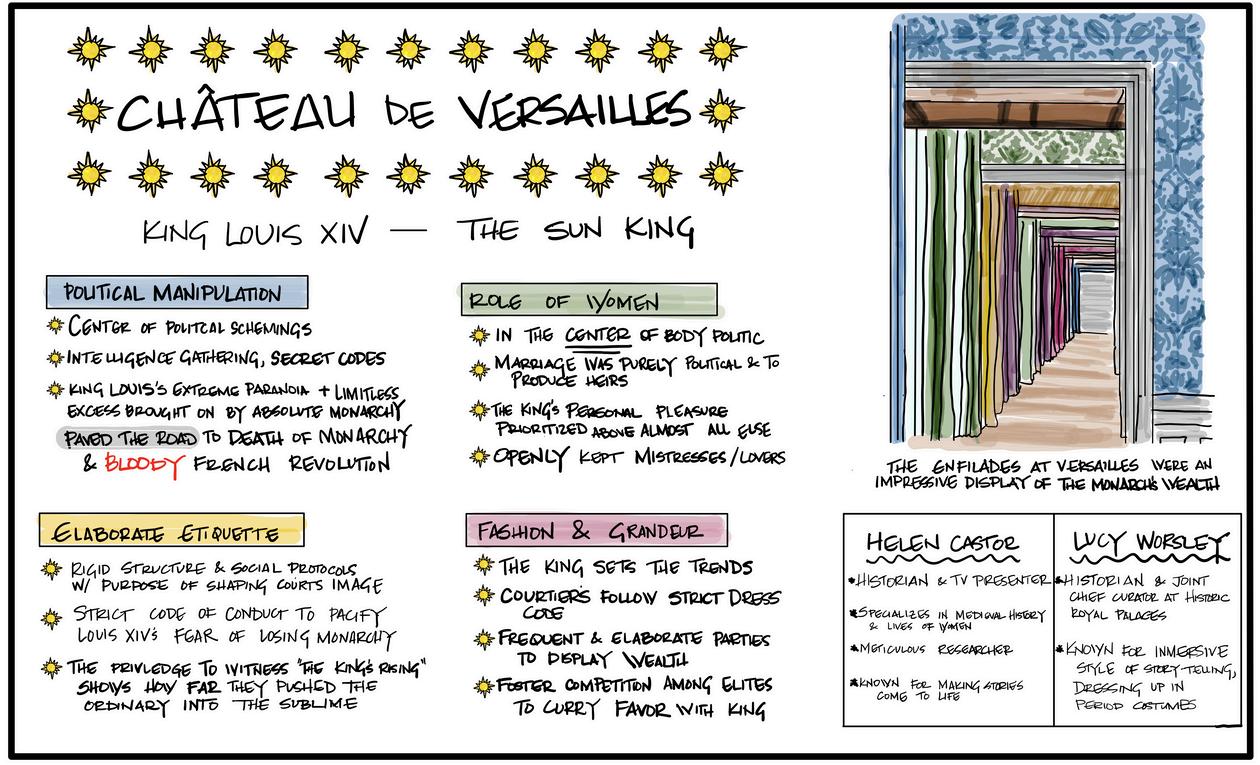 CHÂTEAU DE VERSAILLES
KING LOUIS XIV — THE SUN KING
POLITICAL MANIPULATION
CENTER OF POLITCAL SCHEMINGS
INTELLIGENCE GATHERING, SECRET CODES
KING LOUIS'S EXTREME PARANOIA + LIMITLESS
EXCESS BROUGHT ON BY ABSOLUTE MONARCHY
PAVED THE ROAD TO DEATH OF MONARCHY
& BLOODY FRENCH REVOLUTION
ROLE OF WOMEN
IN THE CENTER OF BODY POLITIC
MARRIAGE WAS PURELY POLITICAL & TO
PRODUCE HEIRS
THE KING'S PERSONAL PLEASURE
PRIORITIZED ABOVE ALMOST ALL ELSE
OPENLY KEPT MISTRESSES/LOVERS
ELABORATE ETIQUETTE
RIGID STRUCTURE & SOCIAL PROTOCOLS
W/ PURPOSE OF SHAPING COURTS IMAGE
STRICT CODE OF CONDUCT TO PACIFY
LOUIS XIV'S FEAR OF LOSING MONARCHY
THE PRIVLEDGE TO WITNESS "THE KING'S RISING"
SHOWS HOW FAR THEY PUSHED THE
ORDINARY INTO THE SUBLIME
FASHION & GRANDEUR
THE KING SETS THE TRENDS
COURTIERS FOLLOW STRICT DRESS
CODE
FREQUENT & ELABORATE PARTIES
TO DISPLAY WEALTH
FOSTER COMPETITION AMONG ELITES
TO CURRY FAVOR WITH KING
THE ENFILADES AT VERSAILLES WERE AN
IMPRESSIVE DISPLAY OF THE MONARCH'S WEALTH
HELEN CASTOR
HISTORIAN & TV PRESENTER
SPECIALIZES IN MEDIEVAL HISTORY
& LIVES OF WOMEN
METICULOUS RESEARCHER
KNOWN FOR MAKING STORIES
COME TO LIFE
LUCY WORSLEY
HISTORIAN & JOINT
CHIEF CURATOR AT HISTORIC
ROYAL PALACES
KNOWN FOR INMERSIVE
STYLE OF STORY-TELLING,
DRESSING UP IN
PERIOD COSTUMES